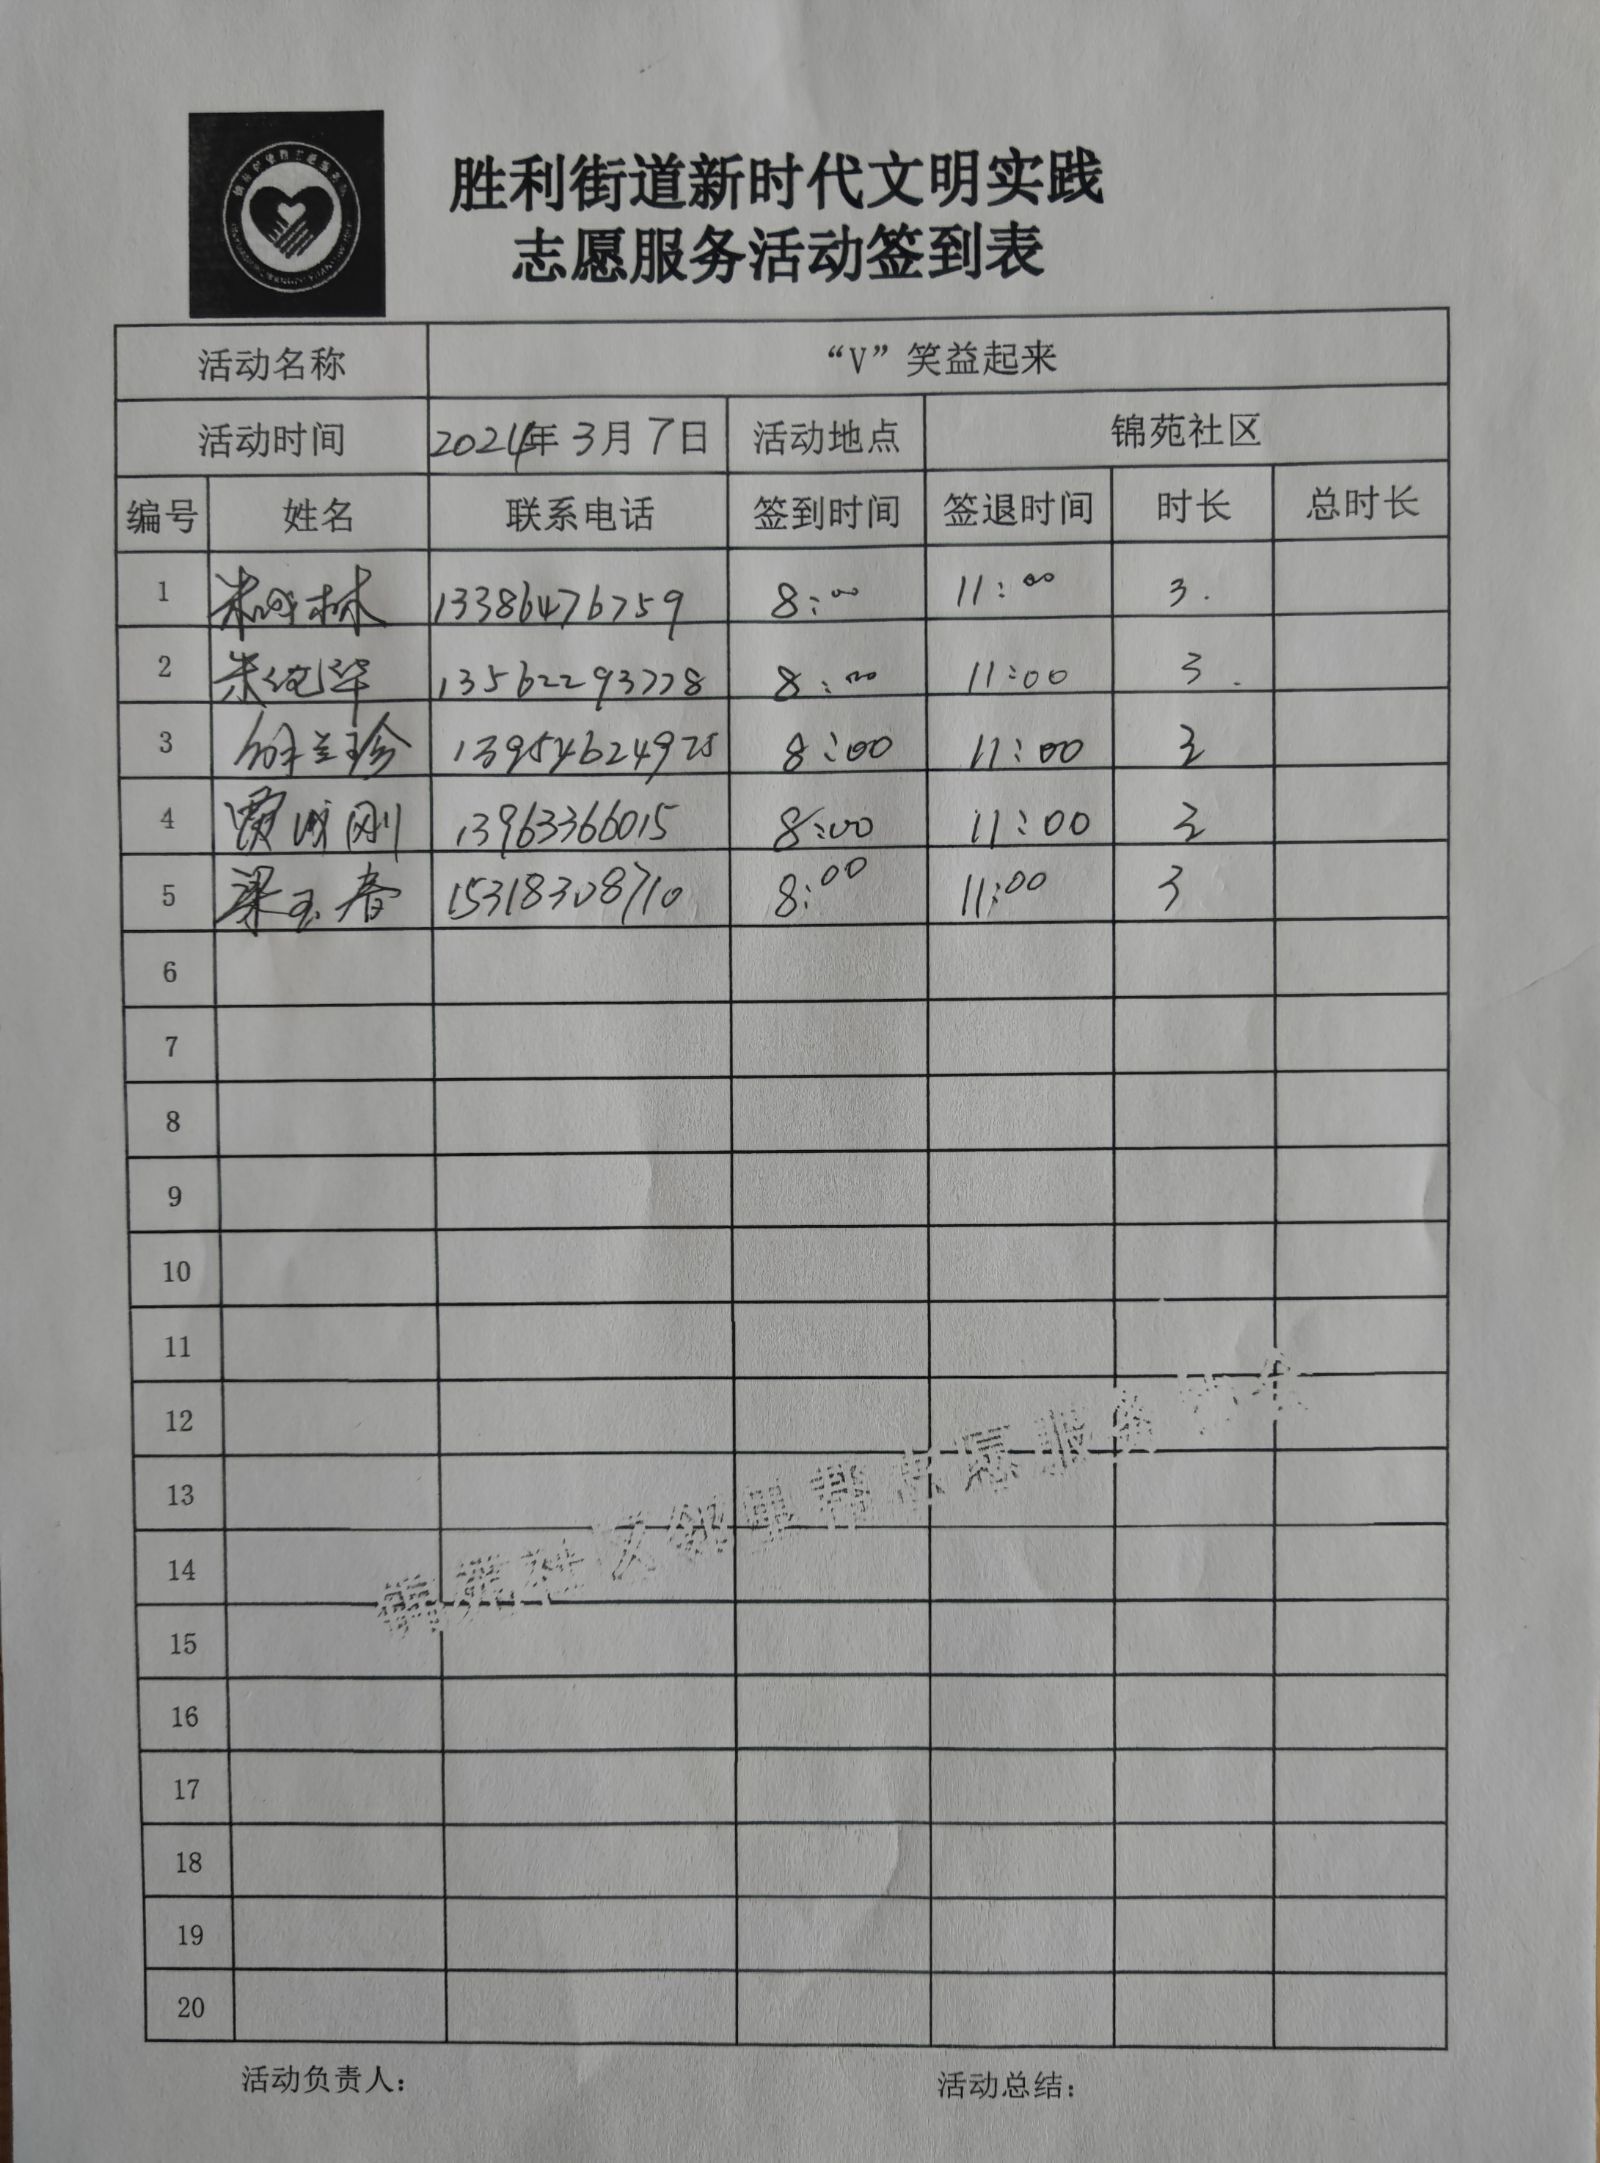 胜利街道新时代文明实践
志愿服务活动签到表
活动名称 “V”笑益起来
活动时间 2024年3月7日 活动地点 锦苑社区
编号 姓名 联系电话 签到时间 签退时间 时长 总时长
1 13386476759 8:00 11:00 3.
2 朱纯华 13562293778 8:00 11:00 3.
3 兰珍 13954624975 8:00 11:00 3
4 贾成刚 13963366015 8:00 11:00 3
5 梁玉春 15318308710 8:00 11:00 3
6
7
8
9
10
11
12
13
14
15
16
17
18
19
20
锦苑社区邻里帮志愿服务协会
活动负责人: 活动总结: